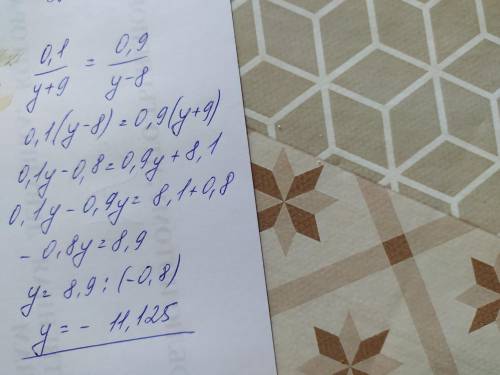 0,1/(y+9) = 0,9/(y-8)
0,1(y-8) = 0,9(y+9)
0,1y-0,8=0,9y+8,1
0,1y-0,9y= 8,1+0,8
-0,8y=8,9
y= 8,9:(-0,8)
y=- 11,125